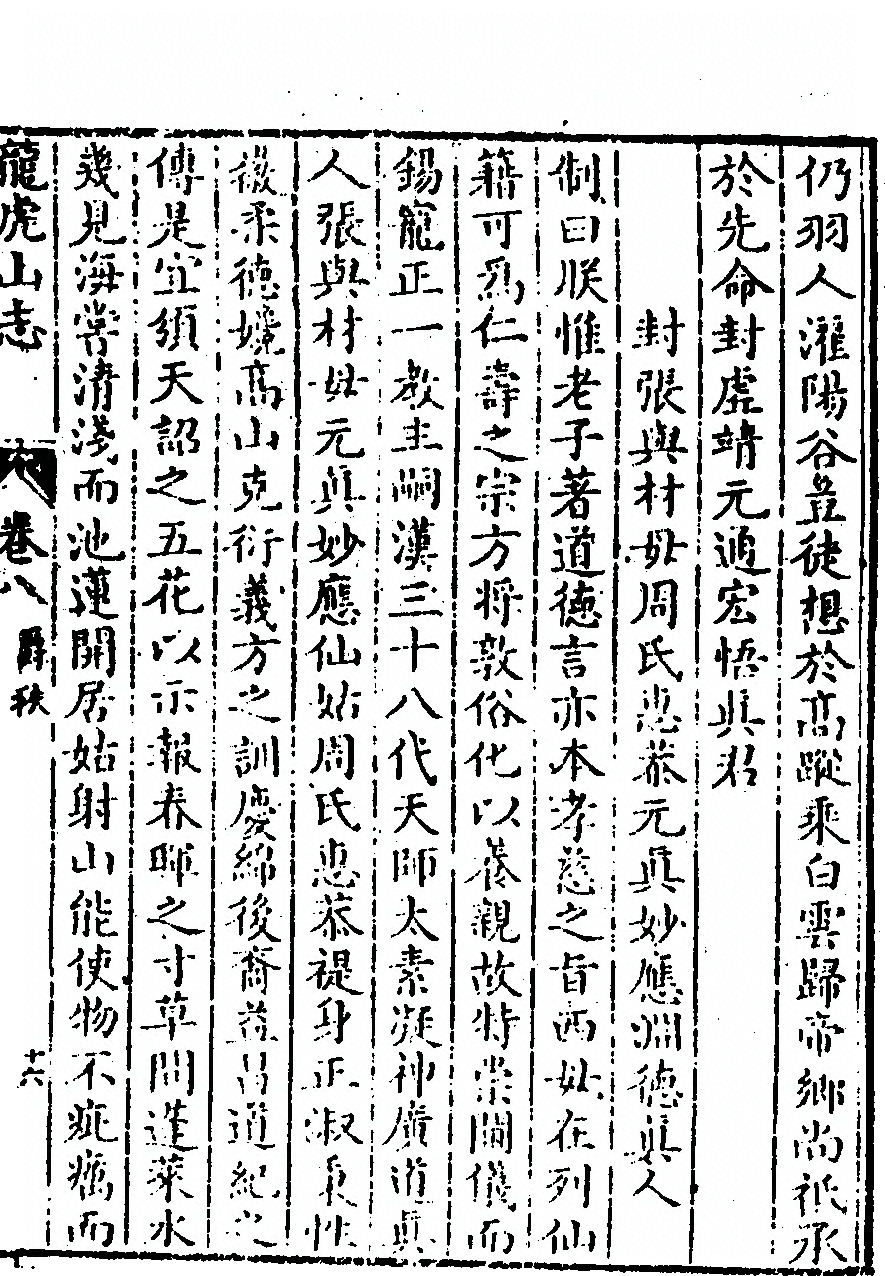 仍羽人濯陽谷豈徒想於高蹤乘白雲歸帝鄉尚祇承
於先命封虛靖元通宏悟眞君
封張與材母周氏惠恭元眞妙應淵德眞人
制曰朕惟老子著道德言亦本孝慈之旨西母在列仙
籍可爲仁壽之宗方將敦俗化以養親故特崇閫儀而
錫寵正一教主嗣漢三十八代天師太素凝神廣道眞
人張與材母元眞妙應仙姑周氏惠恭禔身正淑秉性
後柔德媲高山克衍義方之訓慶綿後裔益昌道紀之
傳是宜須天詔之五花以示報春暉之寸草間蓬萊水
幾見海嘗清淺而池蓮開居姑射山能使物不疵癘而
龍虎山志
卷八
爵秩
十六